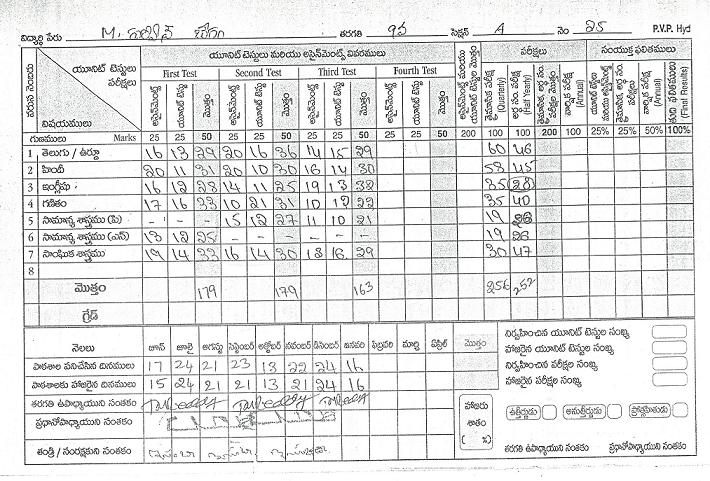 విద్యార్థి పేరు M. తరగతి 9వ సెక్షన్ A నెం 25 P.V.P. Hyd
వరుస నెంబరు యూనిట్ టెస్టులు పరీక్షలు విషయములు
యూనిట్ టెస్టులు మరియు అసైన్‌మెంట్స్ వివరములు
అసైన్‌మెంట్ మరియు యూనిట్ టెస్టుల మొత్తం
పరీక్షలు
సంయుక్త ఫలితములు
First Test Second Test Third Test Fourth Test
అసైన్‌మెంట్ యూనిట్ టెస్ట్ మొత్తం అసైన్‌మెంట్ యూనిట్ టెస్ట్ మొత్తం అసైన్‌మెంట్ యూనిట్ టెస్ట్ మొత్తం అసైన్‌మెంట్ యూనిట్ టెస్ట్ మొత్తం
(Quarterly) (Half Yearly) (Annual) (Annual) (Final Results)
గుణములు Marks 25 25 50 25 25 50 25 25 50 25 25 50 200 100 100 200 100 25% 25% 50% 100%
1 తెలుగు / ఉర్దూ 16 13 29 20 16 36 14 15 29 60 46
2 హిందీ 20 11 31 20 10 30 16 14 30 58 45
3 ఇంగ్లీషు 16 12 28 14 11 25 19 13 35
4 గణితం 17 16 33 10 21 31 10 12 22 35 40
5 సామాన్య శాస్త్రము (పి) - - - 15 12 27 11 10 21 19
6 సామాన్య శాస్త్రము (ఎన్) 13 12 25 - - - - - - 19
7 సాంఘిక శాస్త్రము 19 14 33 16 14 30 13 16 29 30 47
8
మొత్తం 179 179 163 256 252
గ్రేడ్
నెలలు జూన్ జూలై ఆగస్టు సెప్టెంబరు అక్టోబర్ నవంబర్ డిసెంబర్ జనవరి ఫిబ్రవరి మార్చి ఏప్రిల్ మొత్తం
పాఠశాల పనిచేసిన దినములు 17 24 21 23 13 22 24 16
పాఠశాలకు హాజరైన దినములు 15 24 21 21 13 21 24 16
తరగతి ఉపాధ్యాయుని సంతకం
ప్రధానోపాధ్యాయుని సంతకం
తండ్రి / సంరక్షకుని సంతకం
హాజరు శాతం ( %)
నిర్వహించిన యూనిట్ టెస్టుల సంఖ్య
హాజరైన యూనిట్ టెస్టుల సంఖ్య
నిర్వహించిన పరీక్షల సంఖ్య
హాజరైన పరీక్షల సంఖ్య
ఉత్తీర్ణుడు అనుత్తీర్ణుడు ప్రోత్సహితుడు
తరగతి ఉపాధ్యాయుని సంతకం ప్రధానోపాధ్యాయుని సంతకం